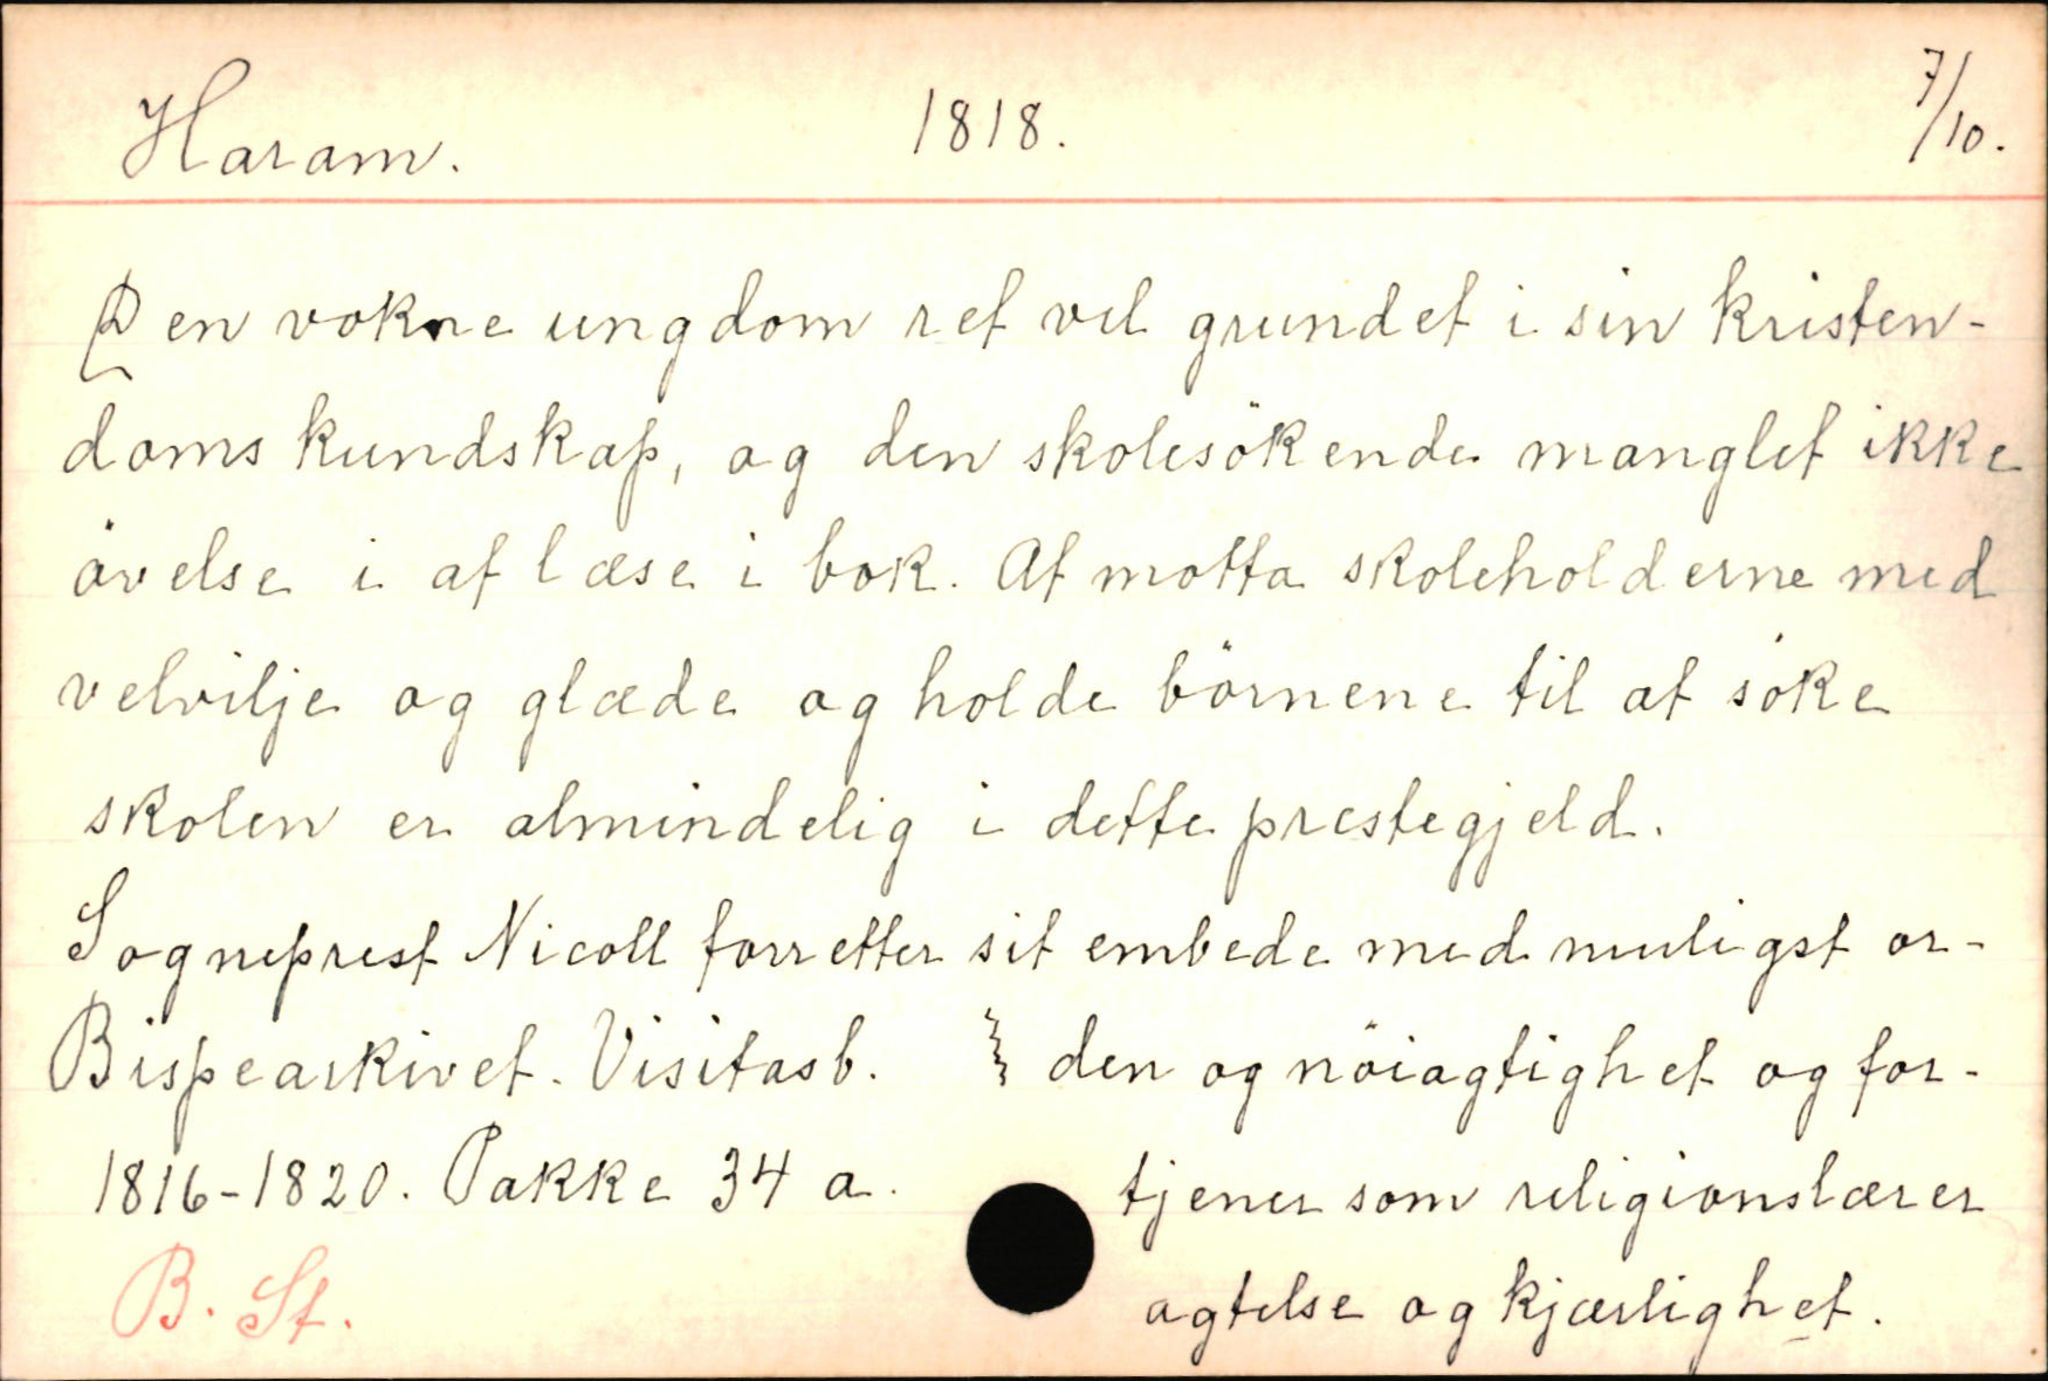 Haram. 1818. 7/10.
Den vokne ungdom ret vel grundet i sin kristen-
doms kundskap, og den skolesökende manglet ikke
övelse i at læse i bok. At motta skoleholderne med
velvilje og glæde og holde börnene til at söke
skolen er almindelig i dette prestegjeld.
Sogneprest Nicoll forretter sit embede med muligst or-
den og nöiagtighet og for-
tjener som religionslærer
agtelse og kjærlighet.
Bispearkivet. Visitasb.
1816-1820. Pakke 34 a.
B. St.